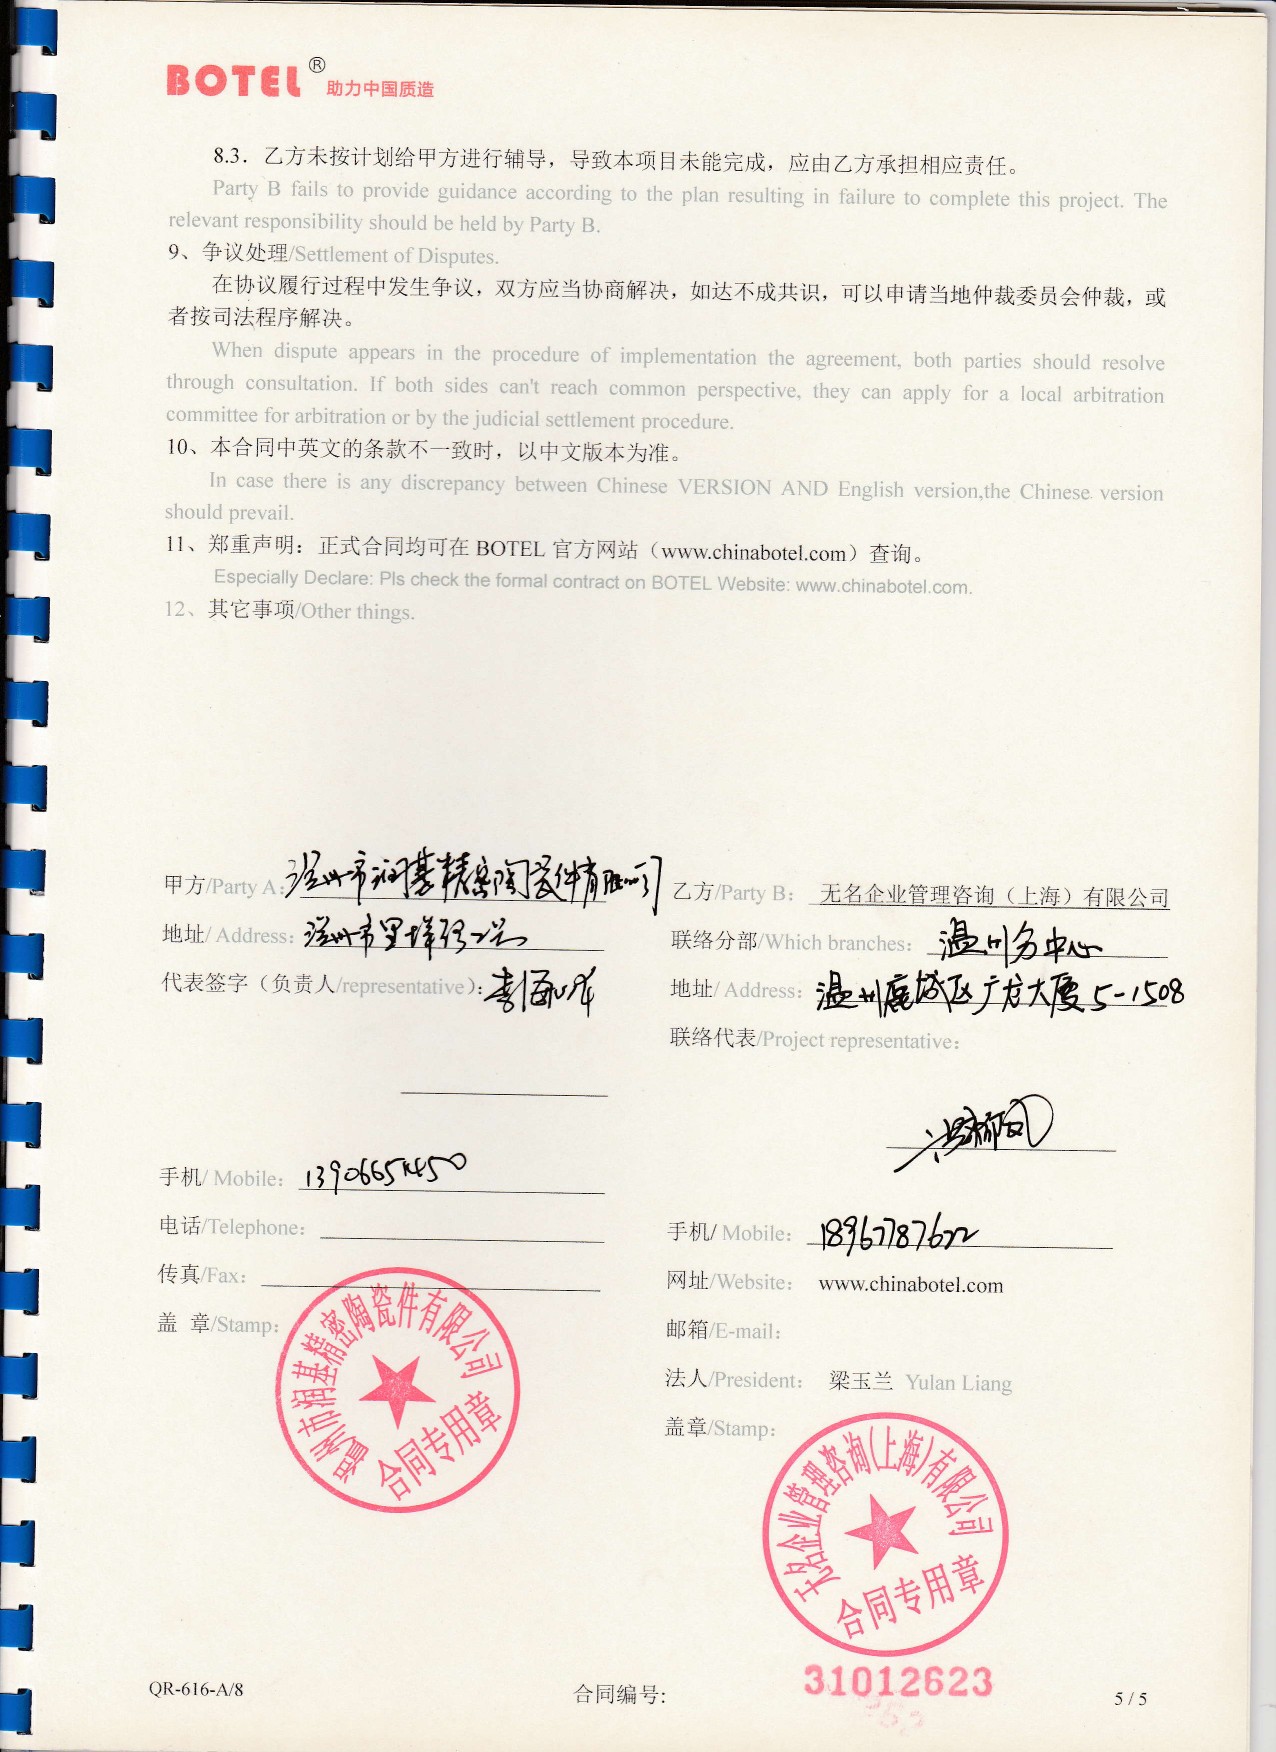 BOTEL® 助力中国质造
8.3．乙方未按计划给甲方进行辅导，导致本项目未能完成，应由乙方承担相应责任。
Party B fails to provide guidance according to the plan resulting in failure to complete this project. The
relevant responsibility should be held by Party B.
9、争议处理/Settlement of Disputes.
在协议履行过程中发生争议，双方应当协商解决，如达不成共识，可以申请当地仲裁委员会仲裁，或
者按司法程序解决。
When dispute appears in the procedure of implementation the agreement, both parties should resolve
through consultation. If both sides can't reach common perspective, they can apply for a local arbitration
committee for arbitration or by the judicial settlement procedure.
10、本合同中英文的条款不一致时，以中文版本为准。
In case there is any discrepancy between Chinese VERSION AND English version,the Chinese version
should prevail.
11、郑重声明：正式合同均可在 BOTEL 官方网站（www.chinabotel.com）查询。
Especially Declare: Pls check the formal contract on BOTEL Website: www.chinabotel.com.
12、其它事项/Other things.
甲方/Party A: 温州市润基精密陶瓷件有限公司
地址/ Address:
代表签字（负责人/representative）:
手机/ Mobile:
电话/Telephone:
传真/Fax:
盖 章/Stamp:
温州市润基精密陶瓷件有限公司
合同专用章
乙方/Party B: 无名企业管理咨询（上海）有限公司
联络分部/Which branches: 温州分中心
地址/ Address: 温州鹿城区广方大厦5-1508
联络代表/Project representative:
手机/ Mobile: 18967787622
网址/Website: www.chinabotel.com
邮箱/E-mail:
法人/President: 梁玉兰 Yulan Liang
盖章/Stamp:
无名企业管理咨询(上海)有限公司
合同专用章
31012623
QR-616-A/8 合同编号: 5 / 5